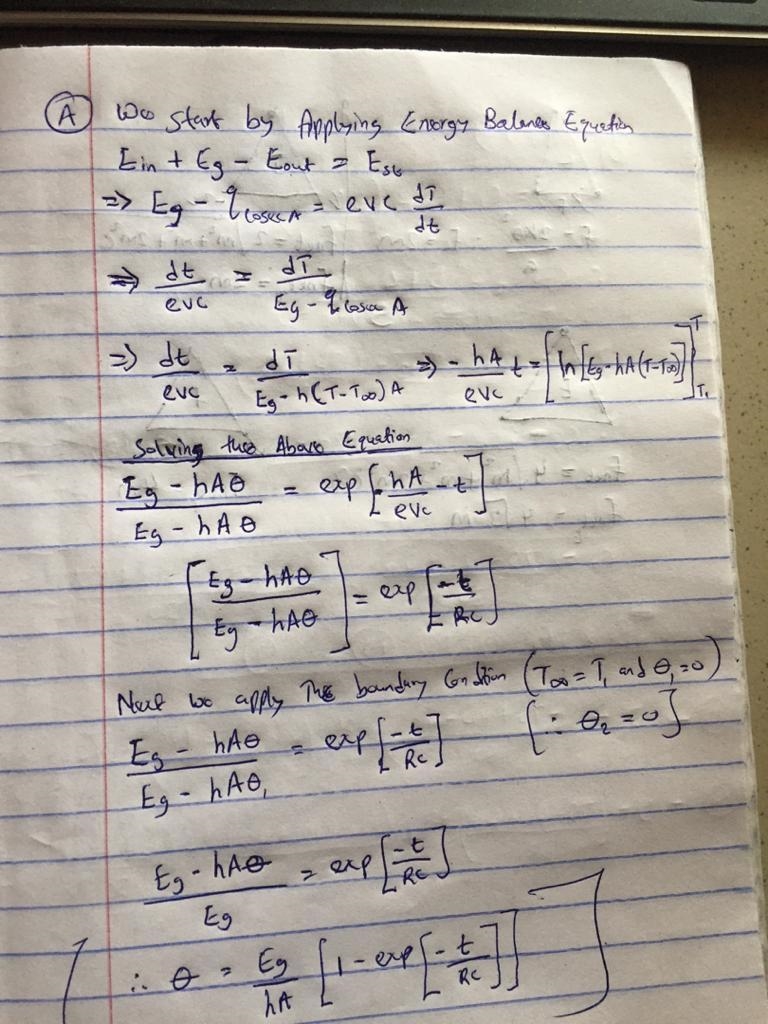 (A) We start by Applying Energy Balance Equation
Ein + Eg - Eout = Est
=> Eg - q = eVC dT/dt
=> dt/eVC = dT/(Eg - q A)
=> dt/eVC = dT/(Eg - h(T-T∞)A) => -hA/eVC t = [ln[Eg-hA(T-T∞)]]T T1
Solving the Above Equation
(Eg - hAθ)/(Eg - hAθ) = exp[-hA/eVC - t]
[(Eg - hAθ)/(Eg - hAθ)] = exp[-t/RC]
Next we apply The boundary Condition (T∞ = T1 and θ1 = 0)
(Eg - hAθ)/(Eg - hAθ1) = exp[-t/RC] [∴ θ2 = 0]
(Eg - hAθ)/Eg = exp[-t/RC]
∴ θ = Eg/hA [1 - exp[-t/RC]]